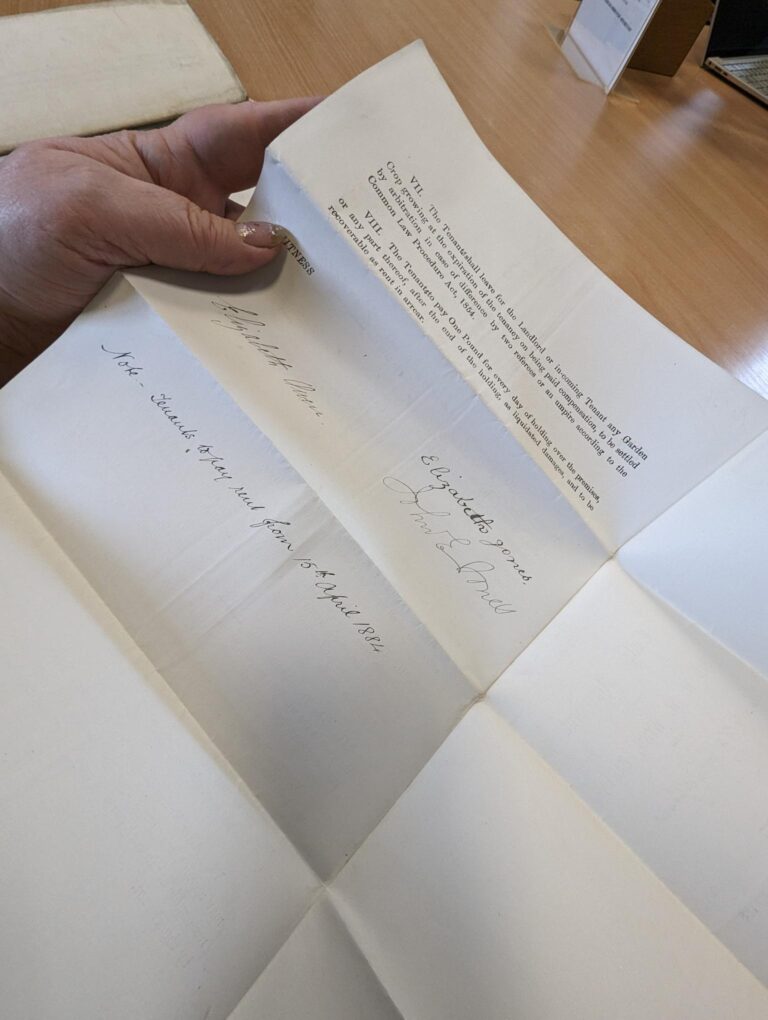 VII. The Tenants shall leave for the Landlord or in-coming Tenant any Garden
Crop growing at the expiration of the tenancy on being paid compensation, to be settled
by arbitration in case of difference by two referees or an umpire according to the
Common Law Procedure Act, 1854.
VIII. The Tenants to pay One Pound for every day of holding over the premises,
or any part thereof, after the end of the holding, as liquidated damages, and to be
recoverable as rent in arrear.
ITNESS
Elizabeth Jones.
John E Jones
Elizabeth
Note - Tenants to pay rent from 15th April 1884